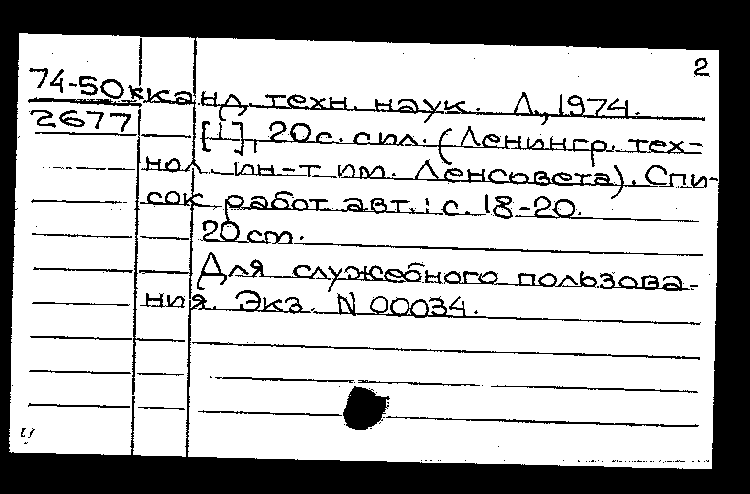 2
74-50к канд. техн. наук. Л., 1974.
2677 [1], 20 с. с ил. (Ленингр. тех-
нол. ин-т им. Ленсовета). Спи-
сок работ авт.: с. 18-20.
20 cm.
Для служебного пользова-
ния. Экз. N 00034.